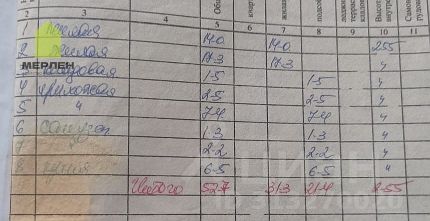 2 3 4 5 6 7 8 9 10 11
1 жилая 14.0 14.0 255
2 жилая 17.3 17.3 "
МЕРЛЕН
3 кладовая 1-5 1-5 "
4 прихожая 2-5 2-5 "
5 " 7.4 7.4 "
6 санузел 1.3 1-3 "
7 " 2-2 2-2 "
8 кухня 6-5 6-5 "
Итого 52.7 31.3 21.4 2-55